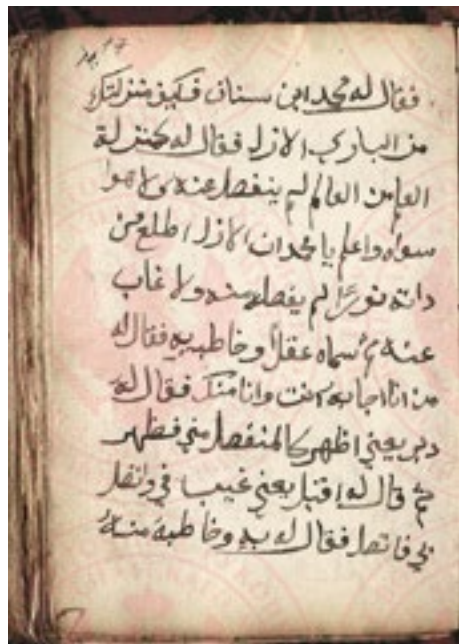 فقال له محمد ابن سنان فكيف منزلتك
من الباري الازل فقال له كمنزلة
العلم من العالم لم ينفصل عنه ولا هوا
سواه واعلم يا محمد ان الازل اطلع من
داته نورًا لم يفصله منه ولا غاب
عنه ثم أسماه عقلاً وخاطبه به فقال له
من انا اجابه انت وانا منك فقال له
دبر يعني اظهر كالمنفصل مني فظهر
ثم قال له اقبل يعني غيب في واتصل
بي فاتصل فقال له به وخاطبه منه